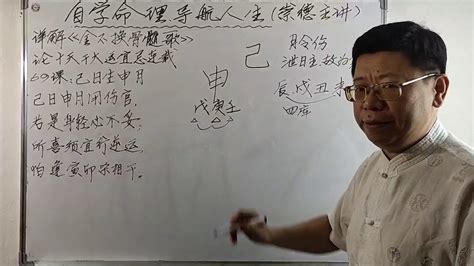 自学命理导航人生(崇德主讲)
详解《金不换骨髓歌》
论十天干大运宜忌连载
69课:己日生申月
己日申月用伤官,
若是身轻心不安。
所喜须宜行逆运,
怕逢寅卯来相干。
己
申
戊庚壬
聆伤
泄日主,故为
辰戌丑未
四库